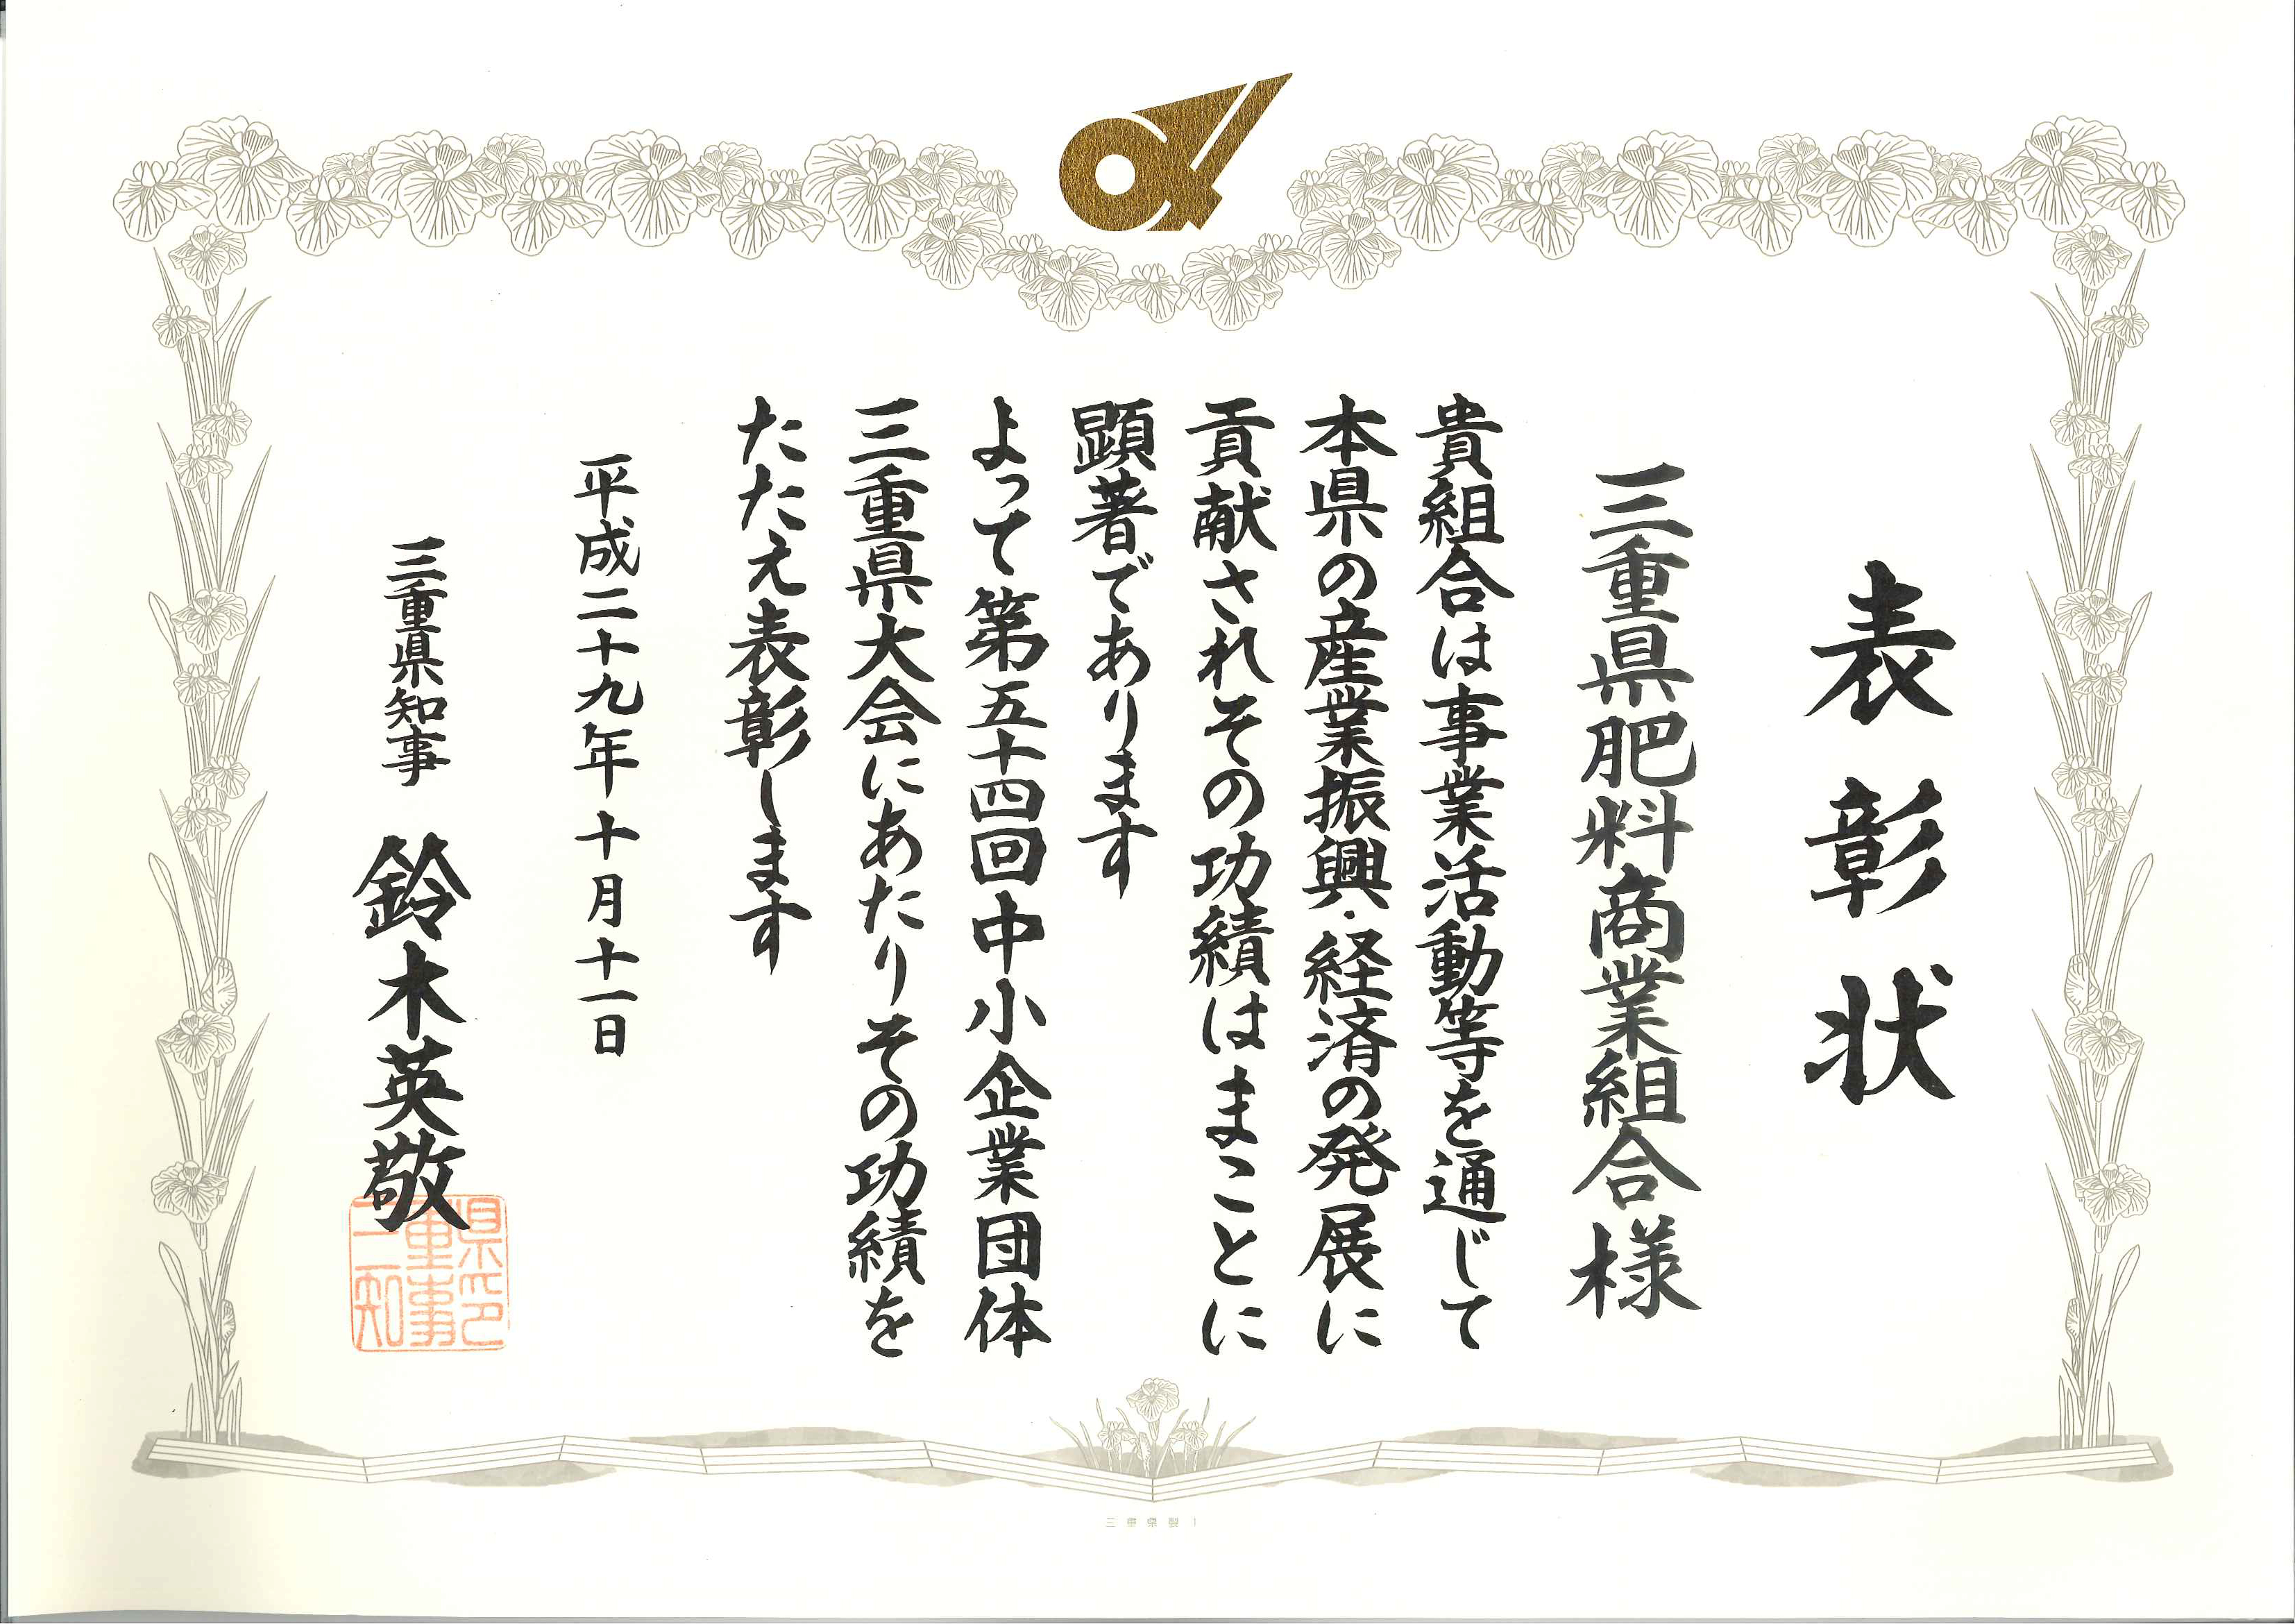 表彰状
三重県肥料商業組合様
貴組合は事業活動等を通じて
本県の産業振興・経済の発展に
貢献されその功績はまことに
顕著であります
よって第五十四回中小企業団体
三重県大会にあたりその功績を
たたえ表彰します
平成二十九年十月十一日
三重県知事 鈴木英敬
三重県知事印